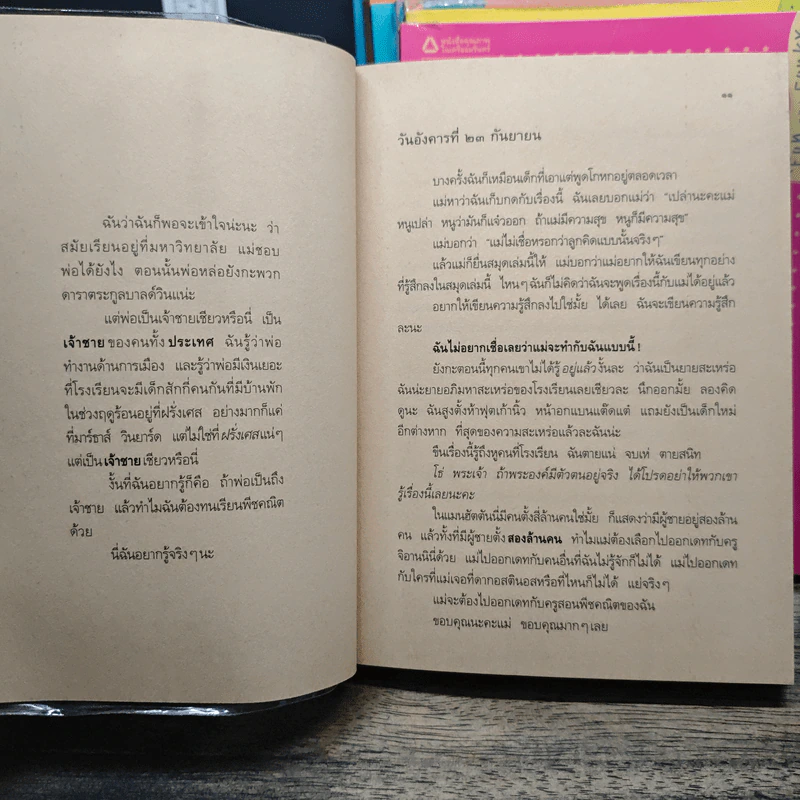 ฉันว่าฉันก็พอจะเข้าใจน่ะนะ ว่า
สมัยเรียนอยู่ที่มหาวิทยาลัย แม่ชอบ
พ่อได้ยังไง ตอนนั้นพ่อหล่อยังกะพวก
ดาราตระกูลบาลด์วินแน่ะ
แต่พ่อเป็นเจ้าชายเชียวหรือนี่ เป็น
เจ้าชายของคนทั้งประเทศ ฉันรู้ว่าพ่อ
ทำงานด้านการเมือง และรู้ว่าพ่อมีเงินเยอะ
ที่โรงเรียนจะมีเด็กสักกี่คนกันที่มีบ้านพัก
ในช่วงฤดูร้อนอยู่ที่ฝรั่งเศส อย่างมากก็แค่
ที่มาร์ธาส์ วินยาร์ด แต่ไม่ใช่ที่ฝรั่งเศสแน่ๆ
แต่เป็นเจ้าชายเชียวหรือนี่
งั้นที่ฉันอยากรู้ก็คือ ถ้าพ่อเป็นถึง
เจ้าชาย แล้วทำไมฉันต้องทนเรียนพีชคณิต
ด้วย
นี่ฉันอยากรู้จริงๆนะ
๑๑
วันอังคารที่ ๒๓ กันยายน
บางครั้งฉันก็เหมือนเด็กที่เอาแต่พูดโกหกอยู่ตลอดเวลา
แม่หาว่าฉันเก็บกดกับเรื่องนี้ ฉันเลยบอกแม่ว่า "เปล่านะคะแม่
หนูเปล่า หนูว่ามันก็แจ๋วออก ถ้าแม่มีความสุข หนูก็มีความสุข"
แม่บอกว่า "แม่ไม่เชื่อหรอกว่าลูกคิดแบบนั้นจริงๆ"
แล้วแม่ก็ยื่นสมุดเล่มนี้ให้ แม่บอกว่าแม่อยากให้ฉันเขียนทุกอย่าง
ที่รู้สึกลงในสมุดเล่มนี้ ไหนๆฉันก็ไม่คิดว่าฉันจะพูดเรื่องนี้กับแม่ได้อยู่แล้ว
อยากให้เขียนความรู้สึกลงไปใช่มั้ย ได้เลย ฉันจะเขียนความรู้สึก
ละนะ
ฉันไม่อยากเชื่อเลยว่าแม่จะทำกับฉันแบบนี้!
ยังกะตอนนี้ทุกคนเขาไม่ได้รู้อยู่แล้วงั้นละ ว่าฉันเป็นยายสะเหร่อ
ฉันน่ะยายอภิมหาสะเหร่อของโรงเรียนเลยเชียวละ นึกออกมั้ย ลองคิด
ดูนะ ฉันสูงตั้งห้าฟุตเก้านิ้ว หน้าอกแบนแต๊ดแต๋ แถมยังเป็นเด็กใหม่
อีกต่างหาก ที่สุดของความสะเหร่อแล้วละฉันน่ะ
ขืนเรื่องนี้รู้ถึงหูคนที่โรงเรียน ฉันตายแน่ จบเห่ ตายสนิท
โธ่ พระเจ้า ถ้าพระองค์มีตัวตนอยู่จริง ได้โปรดอย่าให้พวกเขา
รู้เรื่องนี้เลยนะคะ
ในแมนฮัตตันนี่มีคนตั้งสี่ล้านคนใช่มั้ย ก็แสดงว่ามีผู้ชายอยู่สองล้าน
คน แล้วทั้งที่มีผู้ชายตั้งสองล้านคน ทำไมแม่ต้องเลือกไปออกเดทกับครู
จิอานนินี่ด้วย แม่ไปออกเดทกับคนอื่นที่ฉันไม่รู้จักก็ไม่ได้ แม่ไปออกเดท
กับใครที่แม่เจอที่ดากอสตินอสหรือที่ไหนก็ไม่ได้ แย่จริงๆ
แม่จะต้องไปออกเดทกับครูสอนพีชคณิตของฉัน
ขอบคุณนะคะแม่ ขอบคุณมากๆเลย